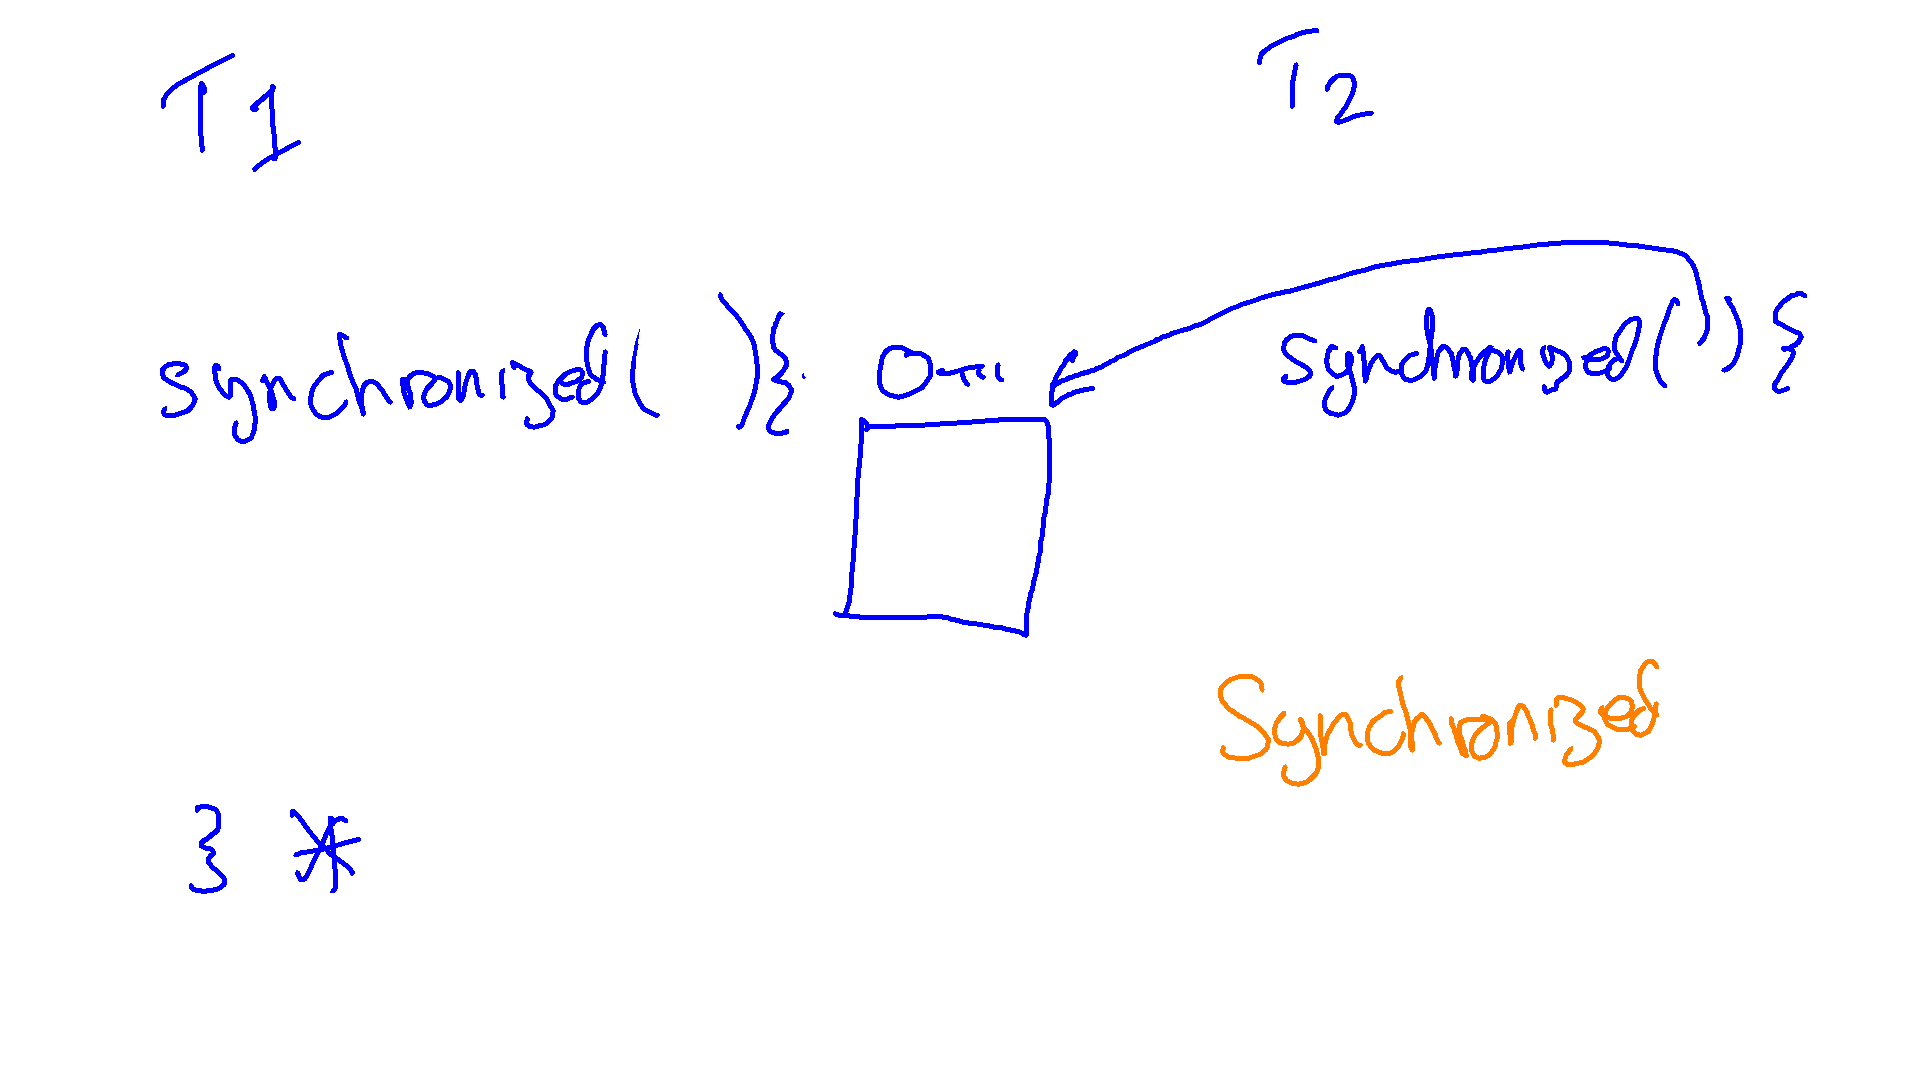 T1
T2
synchronized( ){
synchronized( ){
Synchronized
} *